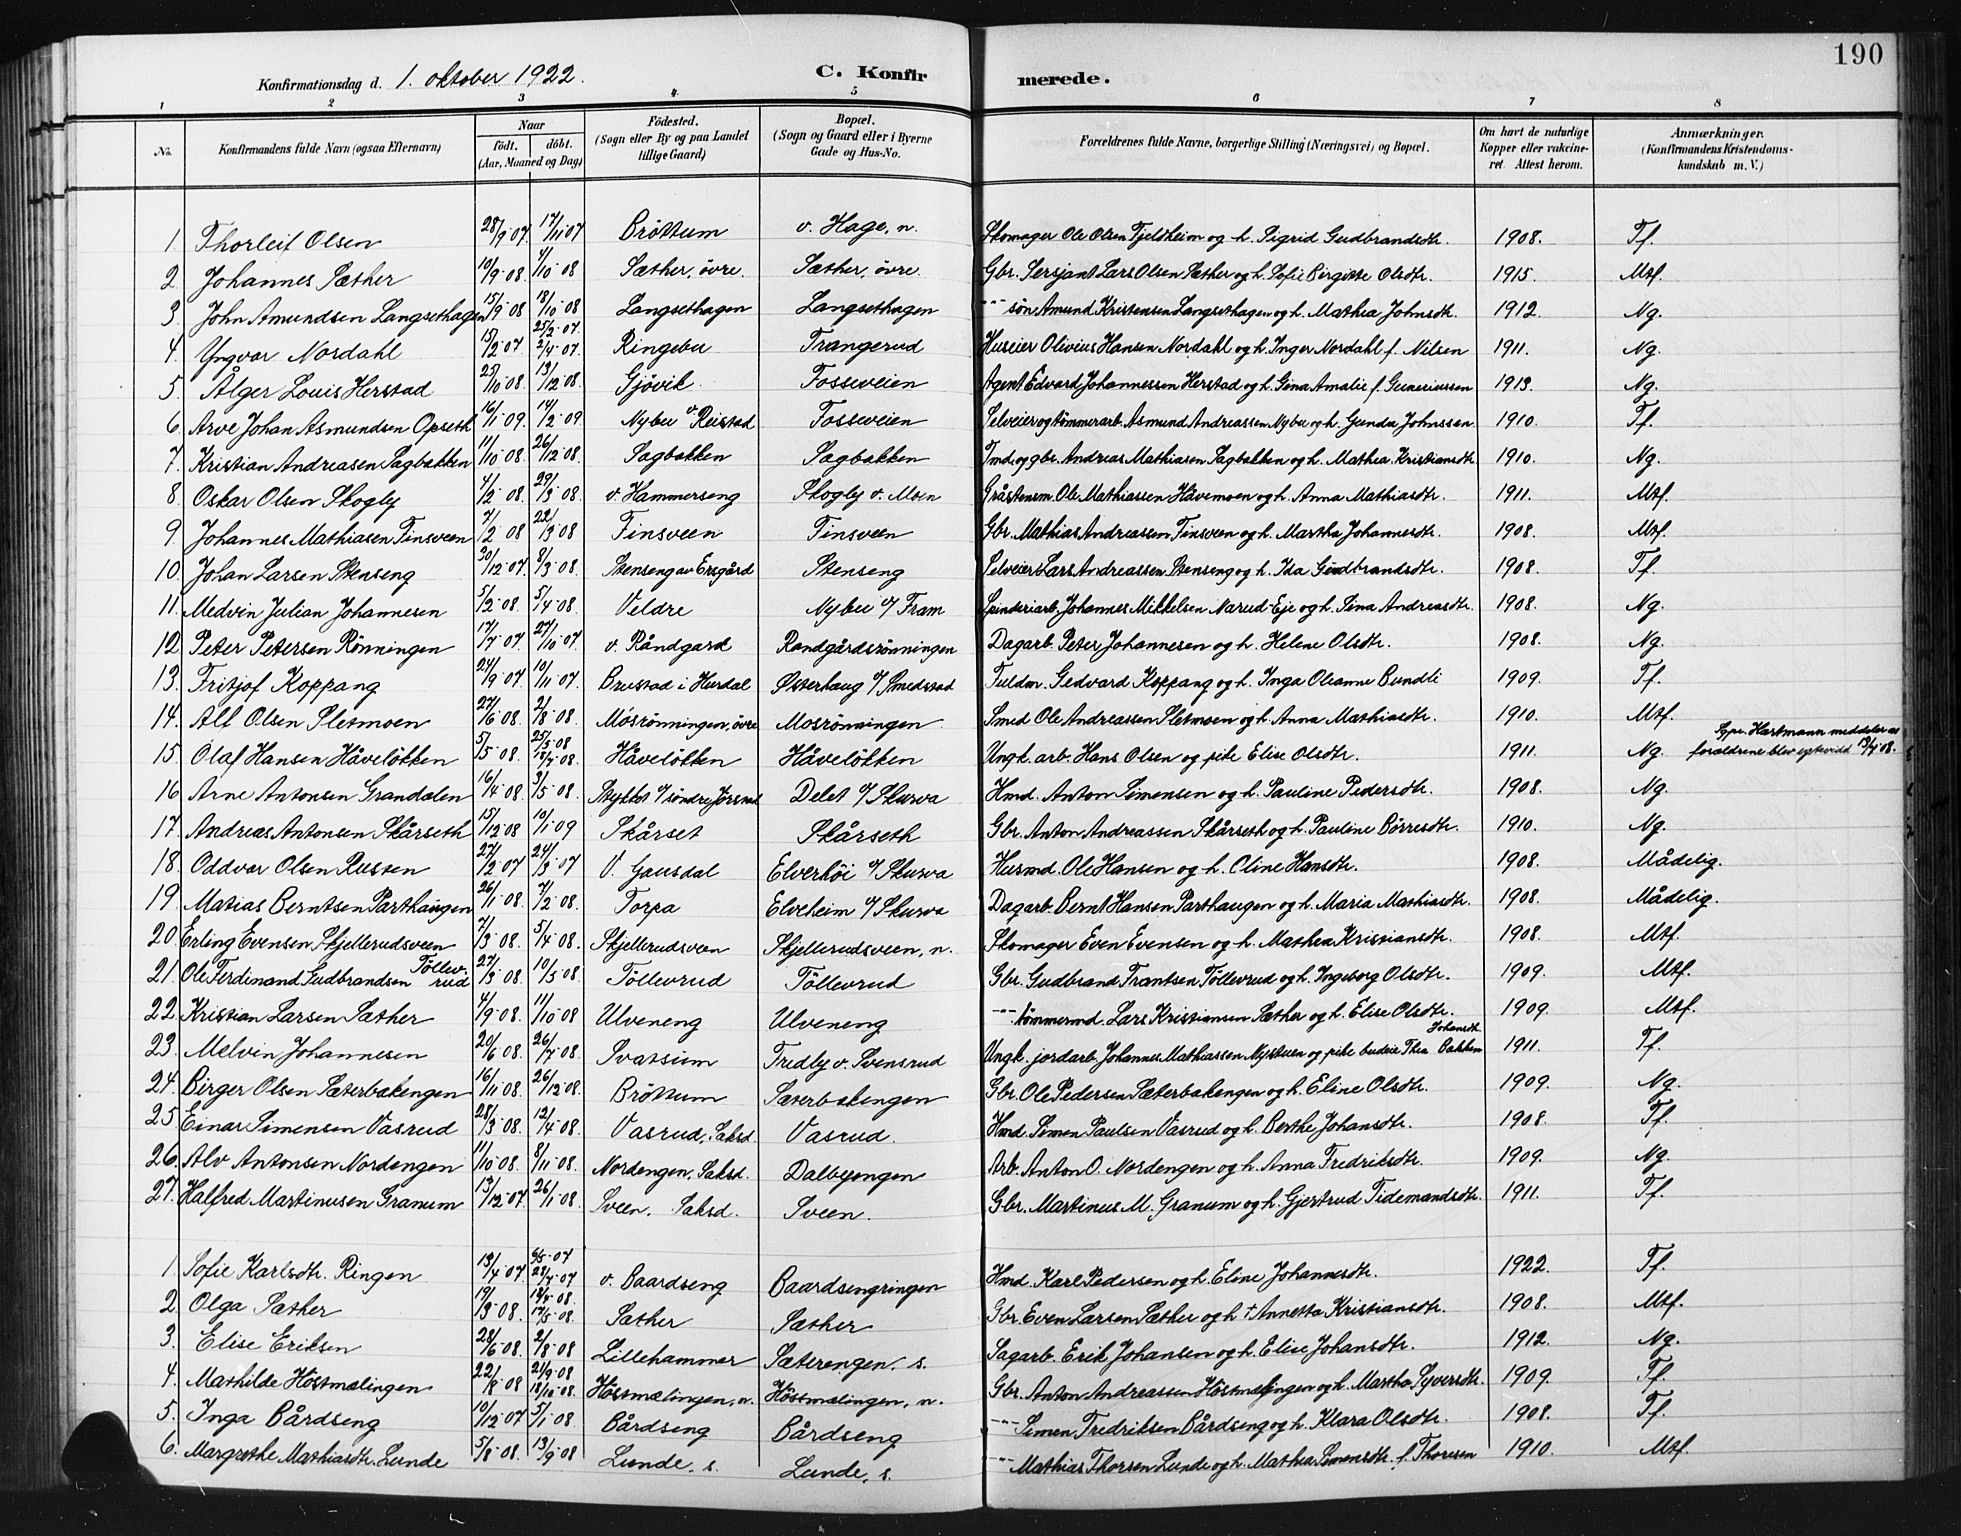 190
Konfirmationsdag d. 1. oktober 1922. C. Konfirmerede.
1 2 3 4 5 6 7 8
No. Konfirmandens fulde Navn (ogsaa Efternavn) Naar födt. döbt. (Aar, Maaned og Dag) Födested. (Sogn eller By og paa Landet tillige Gaard) Bopæl. (Sogn og Gaard eller i Byerne Gade og Hus-No. Forældrenes fulde Navne, borgerlige Stilling (Næringsvei) og Bopæl. Om havt de naturlige Kopper eller vakcineret. Attest herom. Anmærkninger. (Konfirmandens Kristendomskundskab m. V.)
1. Thorleif Olsen 28/9 07. 17/11 07 Bröttum v. Hage, n. Skomager Ole Olsen Fjeldheim og h. Sigrid Gudbrandsdtr. 1908. Tf.
2 Johannes Sæther 10/9 08. 4/10 08 Sæther, övre. Sæther, övre. Gbr. Sersjant Lars Olsen Sæther og h. Sofie Birgitte Olsdtr. 1915 Mtf.
3. John Amundsen Langsethagen 15/9 08 18/10 08 Langsethagen Langsethagen -"- sön Amund Kristensen Langsethagen og h. Mathea Johnsdtr. 1912. Ng.
4. Yngvar Nordahl 15/2 07. 25/2 07. 2/4 07. Ringebu Trangerud Huseier Olivius Hansen Nordahl og h. Inger Nordahl f. Nilsen 1911. Ng.
5. Ålger Louis Herstad 25/10 08. 13/12 08. Gjövik Fosseveien Agent Edvard Johannessen Herstad og h. Gina Amalie f. Guneriussen 1913. Ng.
6. Arve Johan Asmundsen Opseth 16/1 09. 14/2 09. Nybu v Reistad Fosseveien Selveier og tömmerarb. Asmund Andreassen Nybu og h. Gunda Johnssen 1910. Tf.
7. Kristian Andreasen Sagbakken 11/10 08. 26/12 08. Sagbakken Sagbakken Tmd. og gbr. Andreas Mathiasen Sagbakken og h. Mathea Kristiansdtr. 1910. Ng.
8. Oskar Olsen Skogly 4/2 08. 29/3 08. v. Hammerseng Skogly v. Moen Gråstensm. Ole Mathiassen Håvemoen og h. Anna Mathiasdtr. 1911. Mtf.
9. Johannes Mathiasen Finsveen 7/2 08 22/3 08 Finsveen Finsveen Gbr. Mathias Andreassen Finsveen og h. Martha Johannesdtr. 1908. Mtf.
10. Johan Larsen Stenseng 30/12 07. 8/3 08. Stenseng av Ersgård Stenseng Selveier Lars Andreassen Stenseng og h. Ida Gudbrandsdtr. 1908. Tf.
11. Medvin Julian Johannesen 5/2 08. 5/4 08. Veldre Nybu u/ Fram Spinderiarb. Johannes Mikkelsen Narud-Eje og h. Sina Andreasdtr. 1908. Ng.
12 Peter Petersen Rönningen 17/7 07. 27/10 07. v. Råndgard Randgårdsrönningen Dagarb. Peter Johannesen og h. Helene Olsdtr. 1908. Ng.
13. Fritjof Koppang 24/9 07. 10/11 07. Brustad i Hurdal Østerhaug u/ Smedstad Fuldm. Gedvard Koppang og h. Inga Oleanne Bundli 1909. Tf.
14. Alf Olsen Sletmoen 27/6 08. 2/8 08. Mosrönningen, övre Mosrönningen Smed Ole Andreassen Sletmoen og h. Anna Mathiasdtr. 1910. Mtf.
15. Olaf Hansen Håvelökken 5/5 08. 25/5 08 Håvelökken Håvelökken Ungk. arb. Hans Olsen og pike Elise Olsdtr. 1911. Ng. Spr. Hartmann meddeler at forældrene blev egteviet
16. Arne Antonsen Grandalen 16/4 08. 3/5 08. Stykket u/ söndre Jörstad Delet u/ Skurva Hmd. Anton Simensen og h. Pauline Pedersdtr. 1908. Ng.
17. Andreas Antonsen Skårseth 15/12 08 10/1 09 Skårset Skårseth Gbr. Anton Andreassen Skårseth og h. Pauline Börresdtr. 1910. Ng.
18. Oddvar Olsen Rusten 27/2 07 24/3 07 V. Gausdal Elverhöi u/ Skurva Husmd. Ole Hansen og h. Oline Hansdtr. 1908. Mådelig.
19. Matias Berntsen Parthaugen 26/1 08. 7/2 08. Torpa Elveheim u/ Skurva Dagarb. Bernt Hansen Parthaugen og h. Maria Mathiasdtr. 1908. Mådelig.
20. Erling Evensen Skjellerudsveen 7/3 08. 5/4 08. Skjellerudsveen Skjellerudsveen, n. Skomager Even Evensen og h. Mathea Kristiansdtr. 1908. Mtf.
21. Ole Ferdinand Gudbrandsen Töllevrud 27/3 08. 10/5 08. Töllevrud Töllevrud Gbr. Gudbrand Frantsen Töllevrud og h. Ingeborg Olsdtr. 1909. Mtf.
22. Kristian Larsen Sæther 4/9 08. 11/10 08 Ulveneng Ulveneng -"- tömmermd. Lars Kristiansen Sæther og h. Elise Olsdtr. 1909. Mtf.
23. Melvin Johannesen 20/6 08. 26/7 08. Svatsum Fredly v. Svensrud Ungk. jordarb. Johannes Mathiassen Nystuen og pike budeie Thea Johansdtr. Bakken 1911. Tf.
24. Birger Olsen Sæterbakengen 16/11 08. 26/12 08. Bröttum Sæterbakengen Gbr. Ole Pedersen Sæterbakengen og h. Eline Olsdtr. 1909. Ng.
25. Einar Simensen Vasrud 28/3 08. 12/4 08. Vasrud, Saksd. Vasrud. Hmd. Simen Paulsen Vasrud og h. Berthe Johansdtr. 1908. Tf.
26. Alv Antonsen Nordengen 11/10 08. 8/11 08. Nordengen, Saksd. Dalbyengen Arb. Anton O. Nordengen og h. Anna Fredriksdtr. 1909. Ng.
27. Halfred Martinusen Granum 13/12 07. 26/1 08. Sveen, Saksd. Sveen. Gbr. Martinus M. Granum og h. Gjertrud Tidemandsdtr. 1911. Tf.
1. Sofie Karlsdtr. Ringen 13/4 07. 6/5 07 28/4 07 v. Baardseng Baardsengringen Hmd. Karl Pedersen og h. Eline Johannesdtr. 1922. Tf.
2. Olga Sæther 19/3 08. 17/5 08. Sæther Sæther Gbr. Even Larsen Sæther og h. † Annetta Kristiansdtr. 1908. Mtf.
3. Elise Eriksen 28/6 08. 2/8 08. Lillehammer Sæterengen. s. Sagarb. Erik Johansen og h. Elise Johansdtr. 1912. Ng.
4. Mathilde Höstmælingen 22/8 08 21/9 08 18/10 08. Höstmælingen, n. Höstmælingen, n. Gbr. Anton Andreassen Höstmælingen og h. Martha Syversdtr. 1909. Tf.
5. Inga Bårdseng 10/12 07 5/1 08. Bårdseng Bårdseng -"- Simen Fredriksen Bårdseng og h. Klara Olsdtr. 1908. Tf.
6. Margrethe Mathiasdtr. Lunde 5/8 08. 13/9 08 Lunde, s. Lunde, s. -"- Mathias Thorsen Lunde og h. Mathea Simensdtr. f. Thoresen 1910. Mtf.